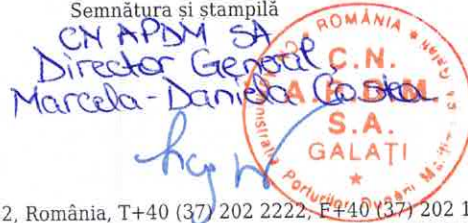 Semnătura și ștampilă
CN APDM SA
Director General
Marcela-Daniela Costea
ROMÂNIA
C.N.
A.P.D.M.
S.A.
GALAȚI
Porturilor Dunării
2, România, T+40 (37) 202 2222, F+40 (37) 202 1